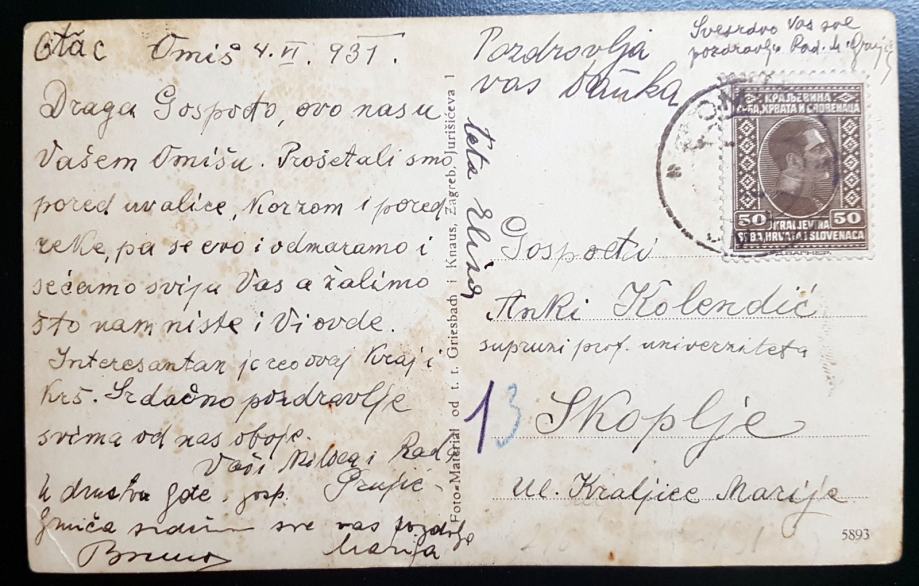 Otac Omiš 4. VI. 931.
Draga Gospođo, ovo nas u
Vašem Omišu. Prošetali smo
pored uvalice, Korzom i pored
reke, pa se evo i odmaramo i
sećamo sviju Vas a žalimo
što nam niste i Vi ovde.
Interesantan je ceo ovaj Kraj i
Krš. Srdačno pozdravlje
svima od nas oboje.
Vaši Milica i Rada
Grujić.
U društvu gđe. gosp.
sve vas pozdravlja
Bruno Marija
Foto-Material od t. t. Griesbach i Knaus, Zagreb, Jurišićeva 1
Pozdravlja
vas Danka
teta
Svesrdno Vas sve
pozdravlja Rad. M. Grujić
КРАЉЕВИНА
СРБА, ХРВАТА И СЛОВЕНАЦА
50 KRALJEVINA 50
SRBA, HRVATA I SLOVENACA
Gospođi
Anki Kolendić
supruzi prof. univerziteta
13
Skoplje
ul. Kraljice Marije
5893